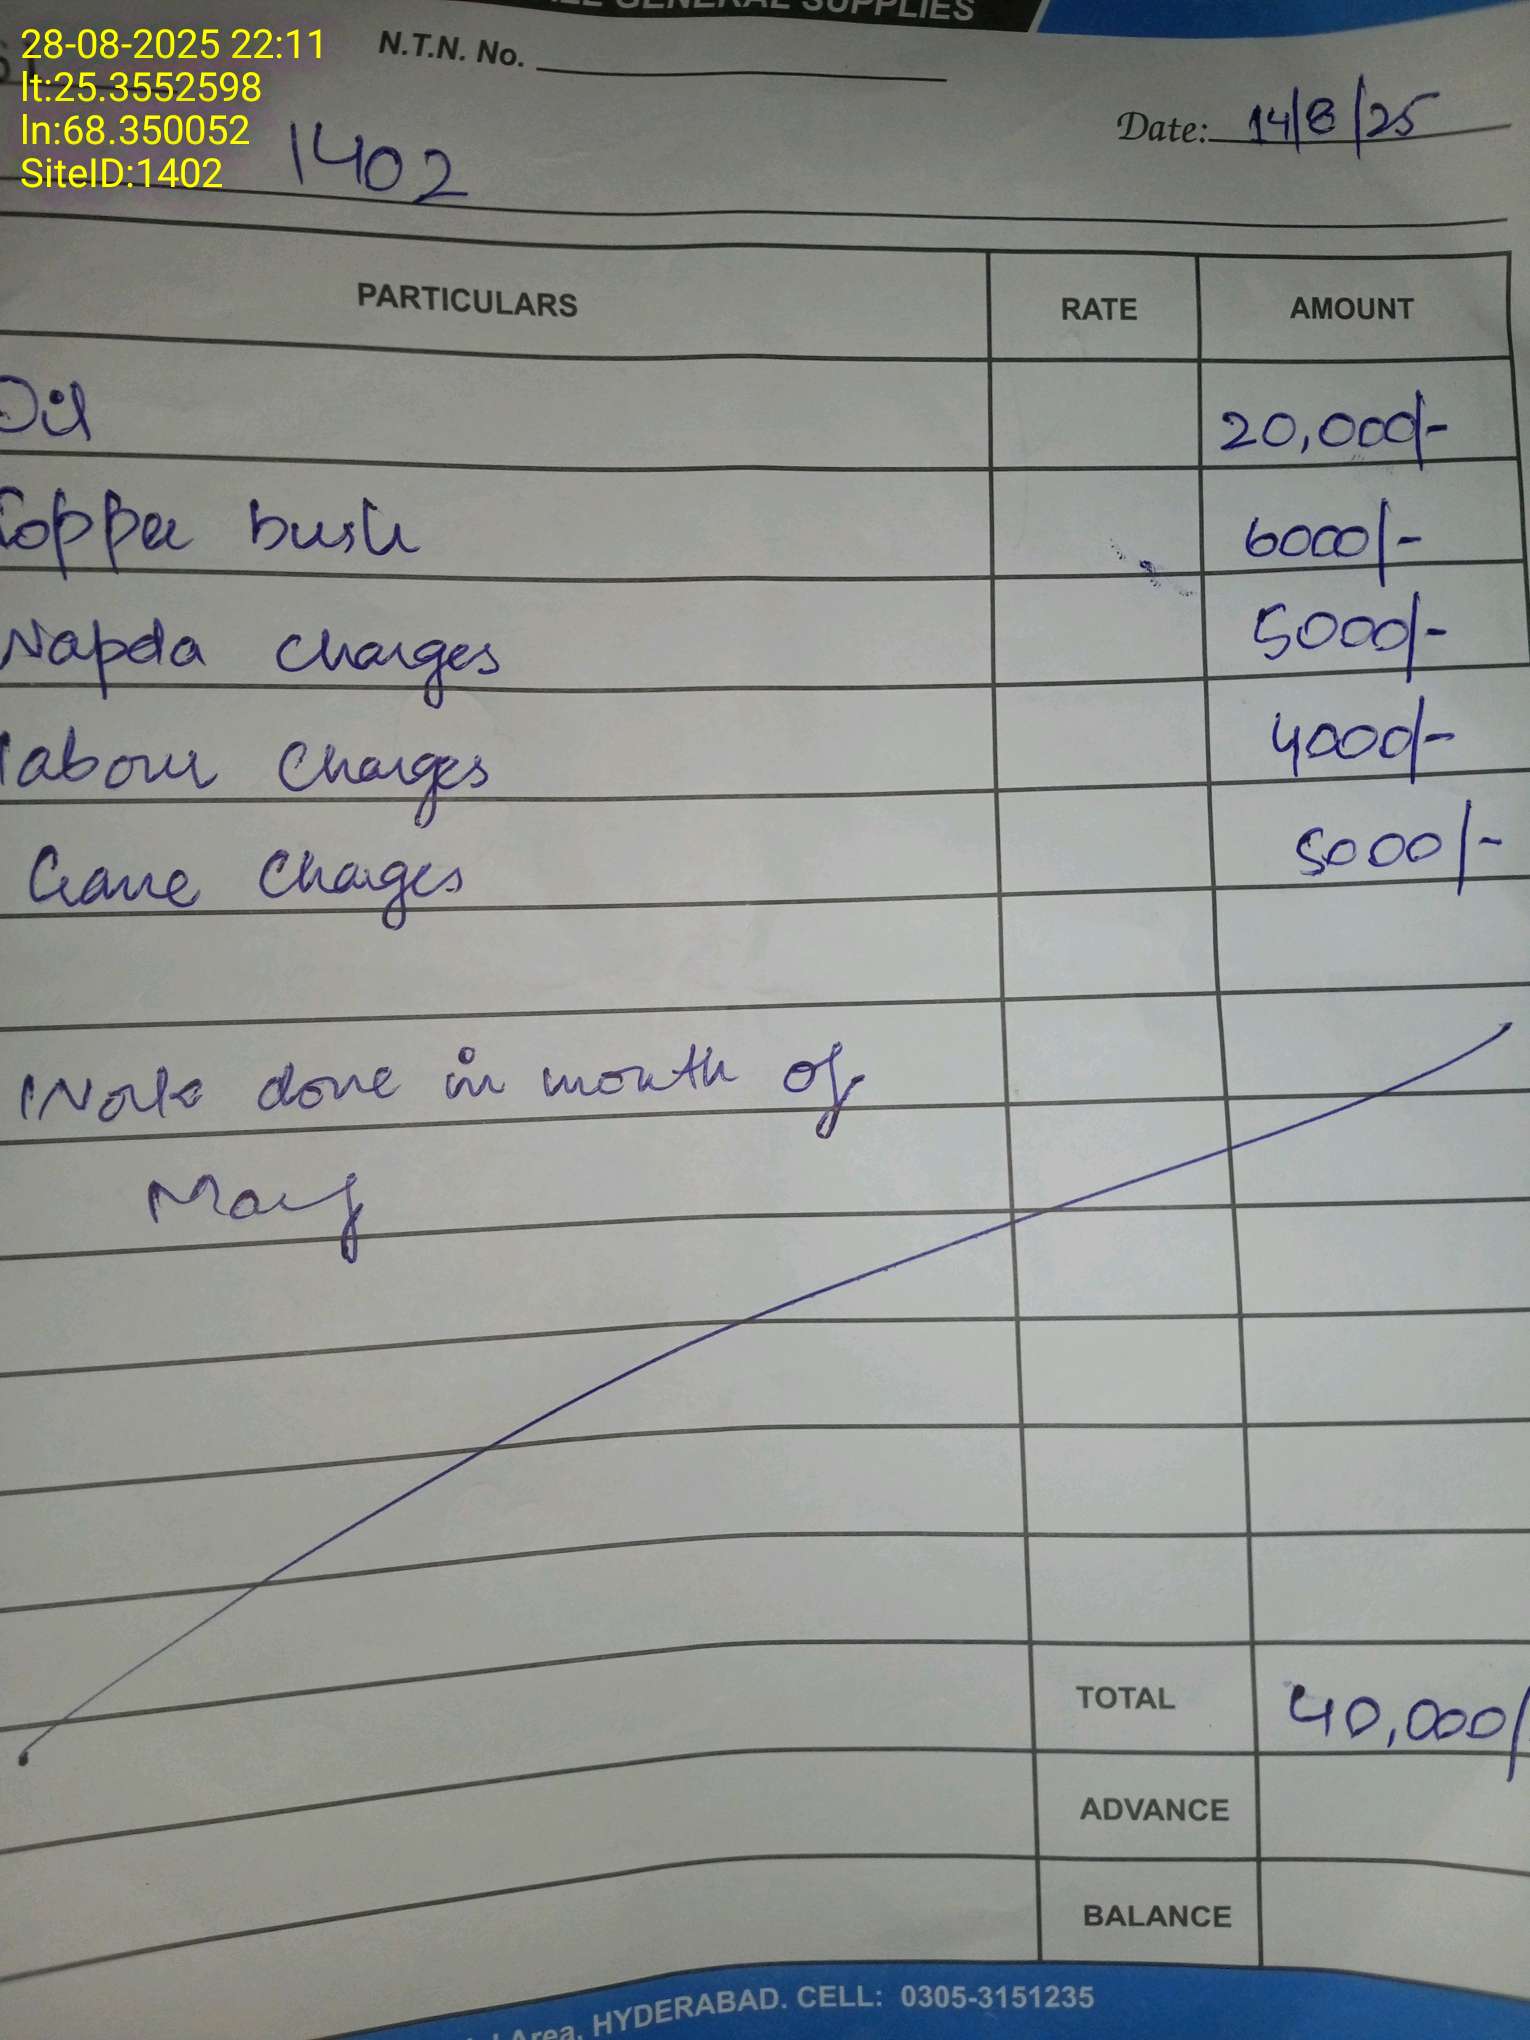 GENERAL SUPPLIES
28-08-2025 22:11
lt:25.3552598
ln:68.350052
SiteID:1402
N.T.N. No.
Date: 14/8/25
1402
PARTICULARS RATE AMOUNT
Oil 20,000/-
Copper bush 6000/-
Wapda charges 5000/-
labour charges 4000/-
Crane charges 5000/-
Work done in month of
May
TOTAL 40,000/
ADVANCE
BALANCE
Area, HYDERABAD. CELL: 0305-3151235